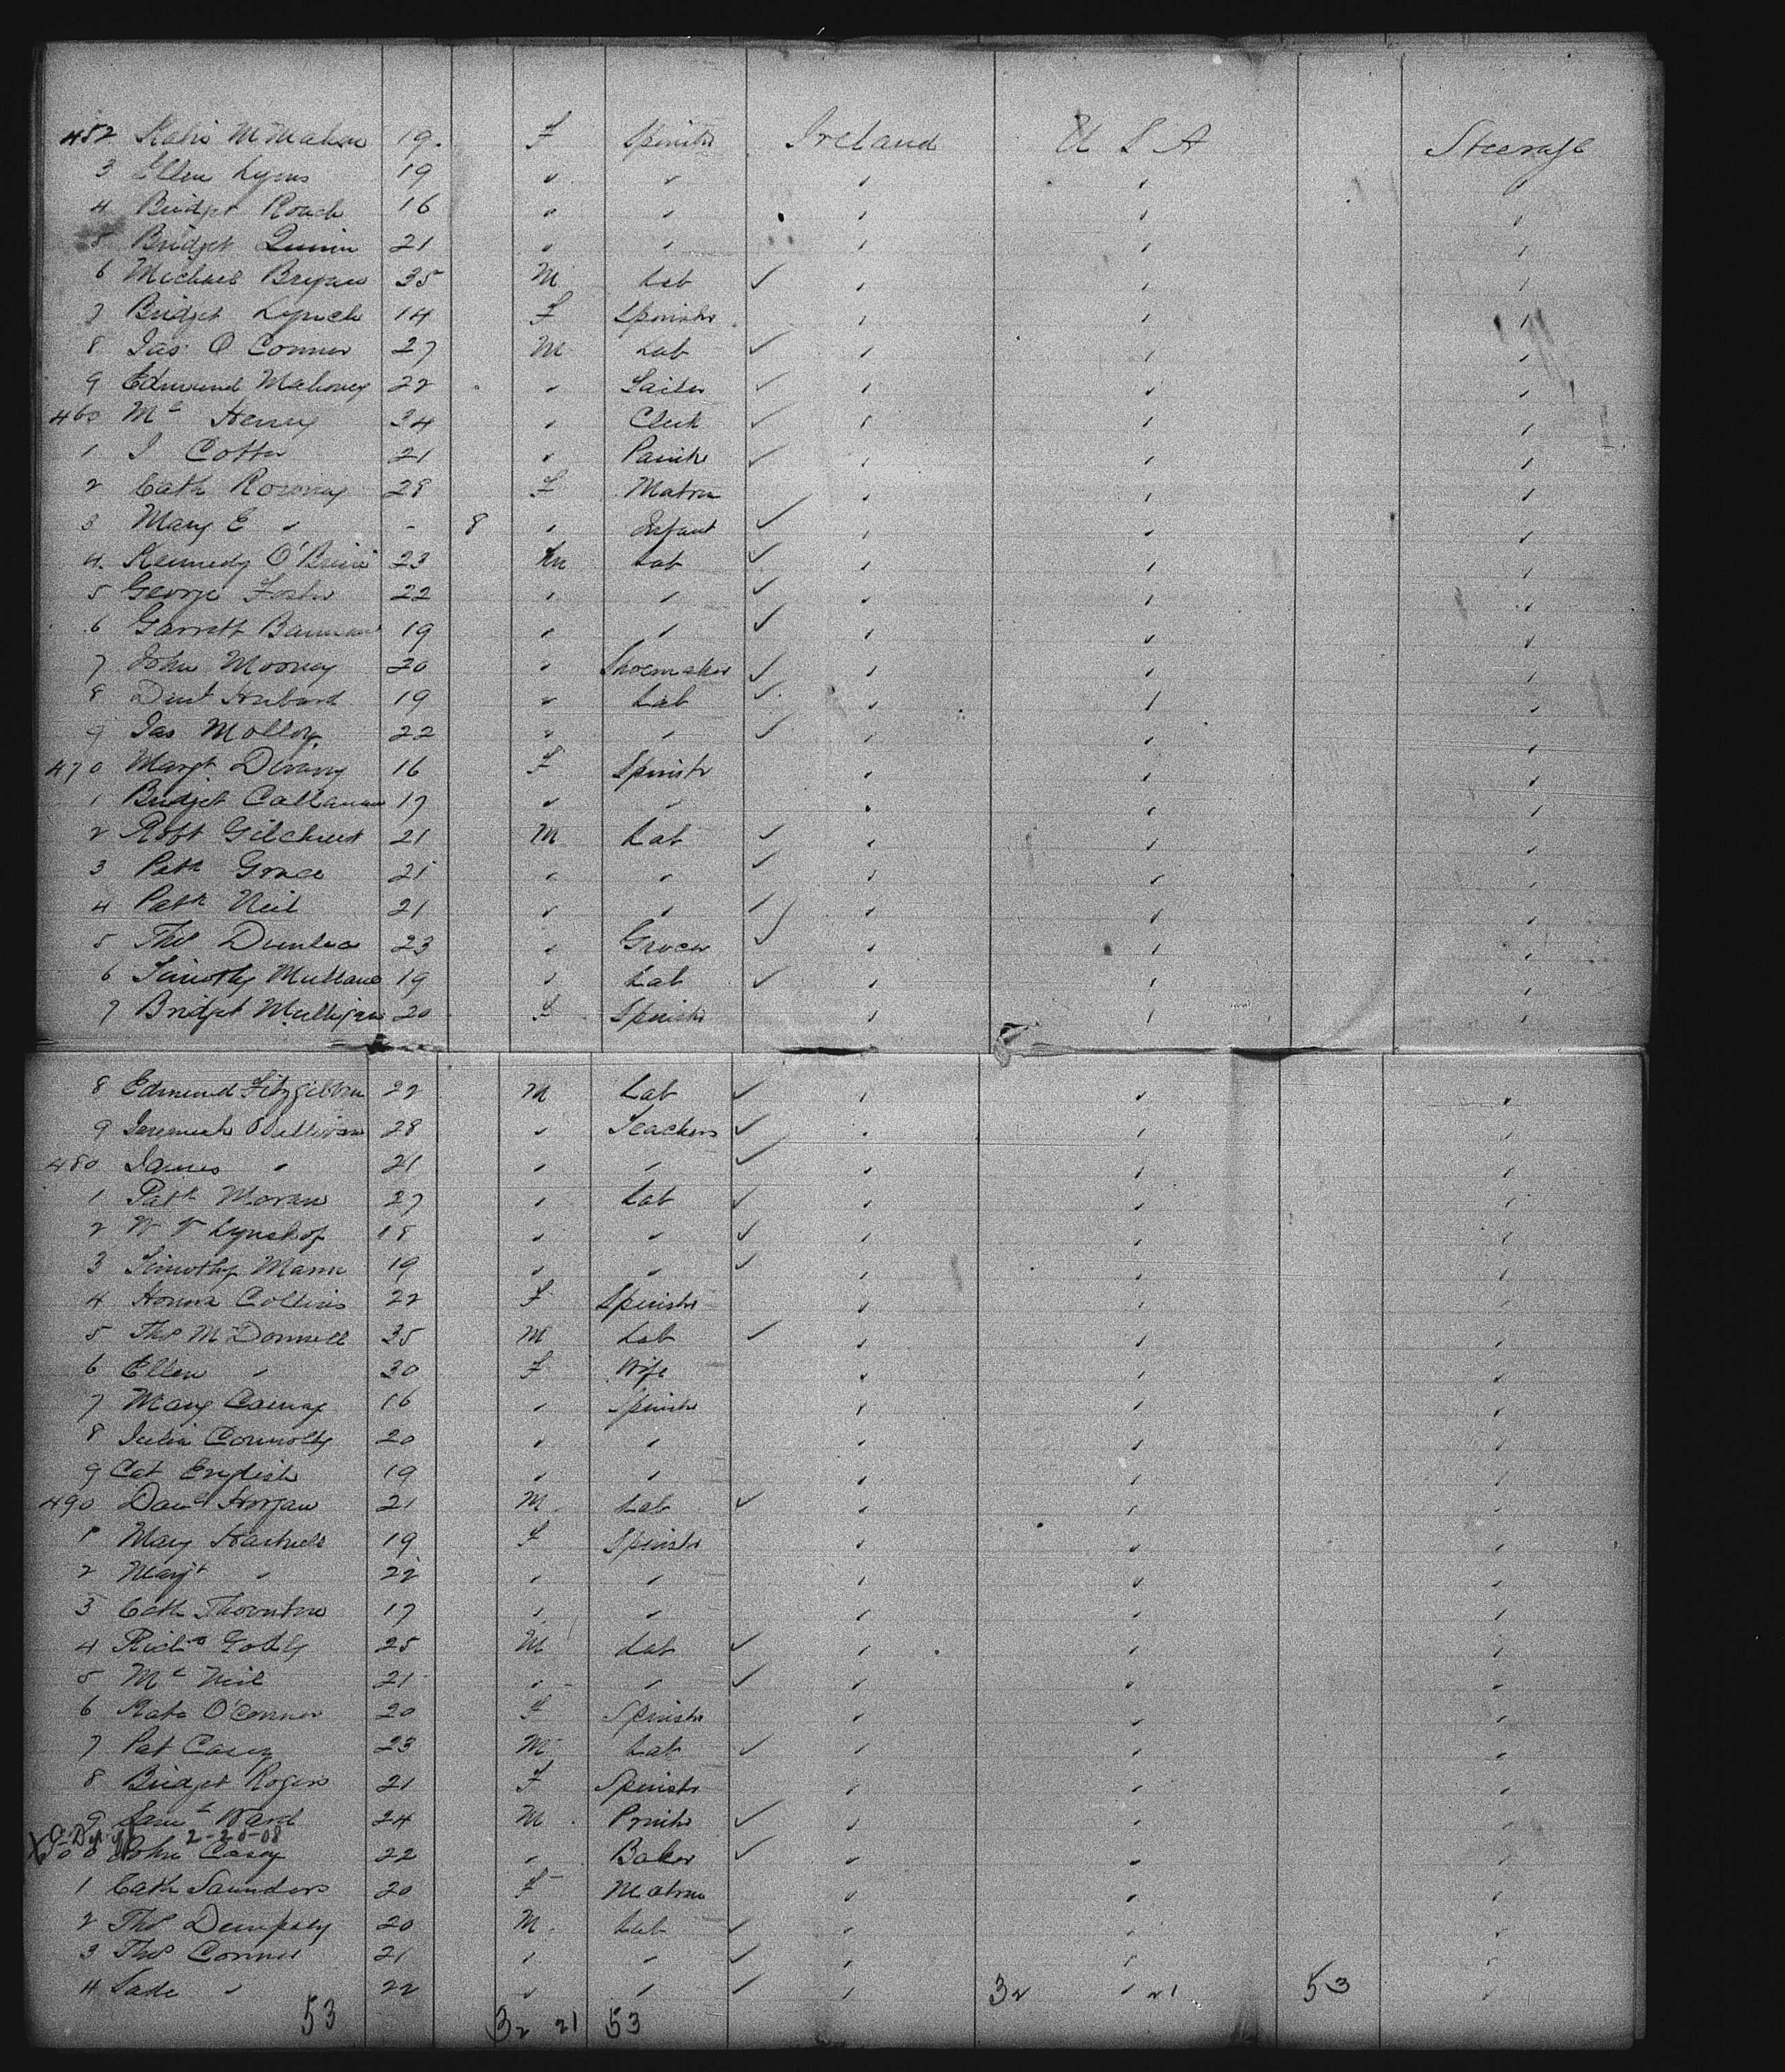 452 Katie McMahon 19 F Spinster Ireland U S A Steerage
3 Ellen Lyons 19 " " " " "
4 Bridget Roach 16 " " " " "
5 Bridget Quinn 21 " " " " "
6 Michael Bryan 35 M Lab ✓ " " "
7 Bridget Lynch 14 F Spinster " " "
8 Jas O Connor 27 M Lab ✓ " " "
9 Edmund Mahoney 22 " Tailor ✓ " " "
460 Ml Henry 34 " Clerk ✓ " " "
1 J Cotter 21 " ✓ " " "
2 Cath Rooney 28 F Matron " " "
3 Mary E " - 8 " Infant ✓ " " "
4 Kennedy O'Brien 23 m Lab ✓ " " "
5 George Foster 22 " " ✓ " " "
6 Garrett 19 " " ✓ " " "
7 John Mooney 20 " Shoemaker ✓ " " "
8 Hubard 19 " Lab ✓ " " "
9 Jas Molloy 22 " " ✓ " " "
470 Margt 16 F Spinstr " " "
1 Bridget Callanan 17 " " " " "
2 Robt Gilchrist 21 M Lab ✓ " " "
3 Patk Grace 21 " " ✓ " " "
4 Patk Neil 21 " " ✓ " " "
5 Thos Dunlea 23 " Grocer ✓ " " "
6 Timothy Mullane 19 " Lab ✓ " " "
7 Bridget Mulligan 20 F Spinster " " "
8 Edmund Fitzgibbon 22 M Lab ✓ " " "
9 Jeremiah OSullivan 28 " Teachers ✓ " " "
480 James " 21 " " ✓ " " "
1 Patk Moran 27 " Lab ✓ " " "
2 18 " " ✓ " " "
3 Timothy Mann 19 " " ✓ " " "
4 Honora Collins 22 F Spinster " " "
5 Thos McDonnell 35 M Lab ✓ " " "
6 Ellen " 30 F Wife " " "
7 Mary 16 " Spinster " " "
8 Julia Connolly 20 " " " " "
9 Cat English 19 " " " " "
490 Danl Horgan 21 M Lab ✓ " " "
1 Mary 19 F Spinster " " "
2 Margt " 22 " " " " "
3 Cath Thornton 17 " " " " "
4 Richd 25 M Lab ✓ " " "
5 Ml Neil 21 " " ✓ " " "
6 Kate O'Connor 20 F Spinster " " "
7 Pat Casey 23 M Lab ✓ " " "
8 Bridget Rogers 21 F Spinster " " "
9 Saml Ward 24 M Printer ✓ " " "
2-25-08
500 John Casey 22 " Baker ✓ " " "
1 Cath Saunders 20 F Matron " " "
2 Thos Dempsey 20 M Lab ✓ " " "
3 Thos Connor 21 " " ✓ " " "
4 " 22 " " ✓ " 32 " 21 53 "
53 32 21 53